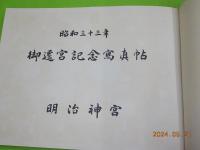 昭和三十三年
御遷宮記念寫真帖
明治神宮